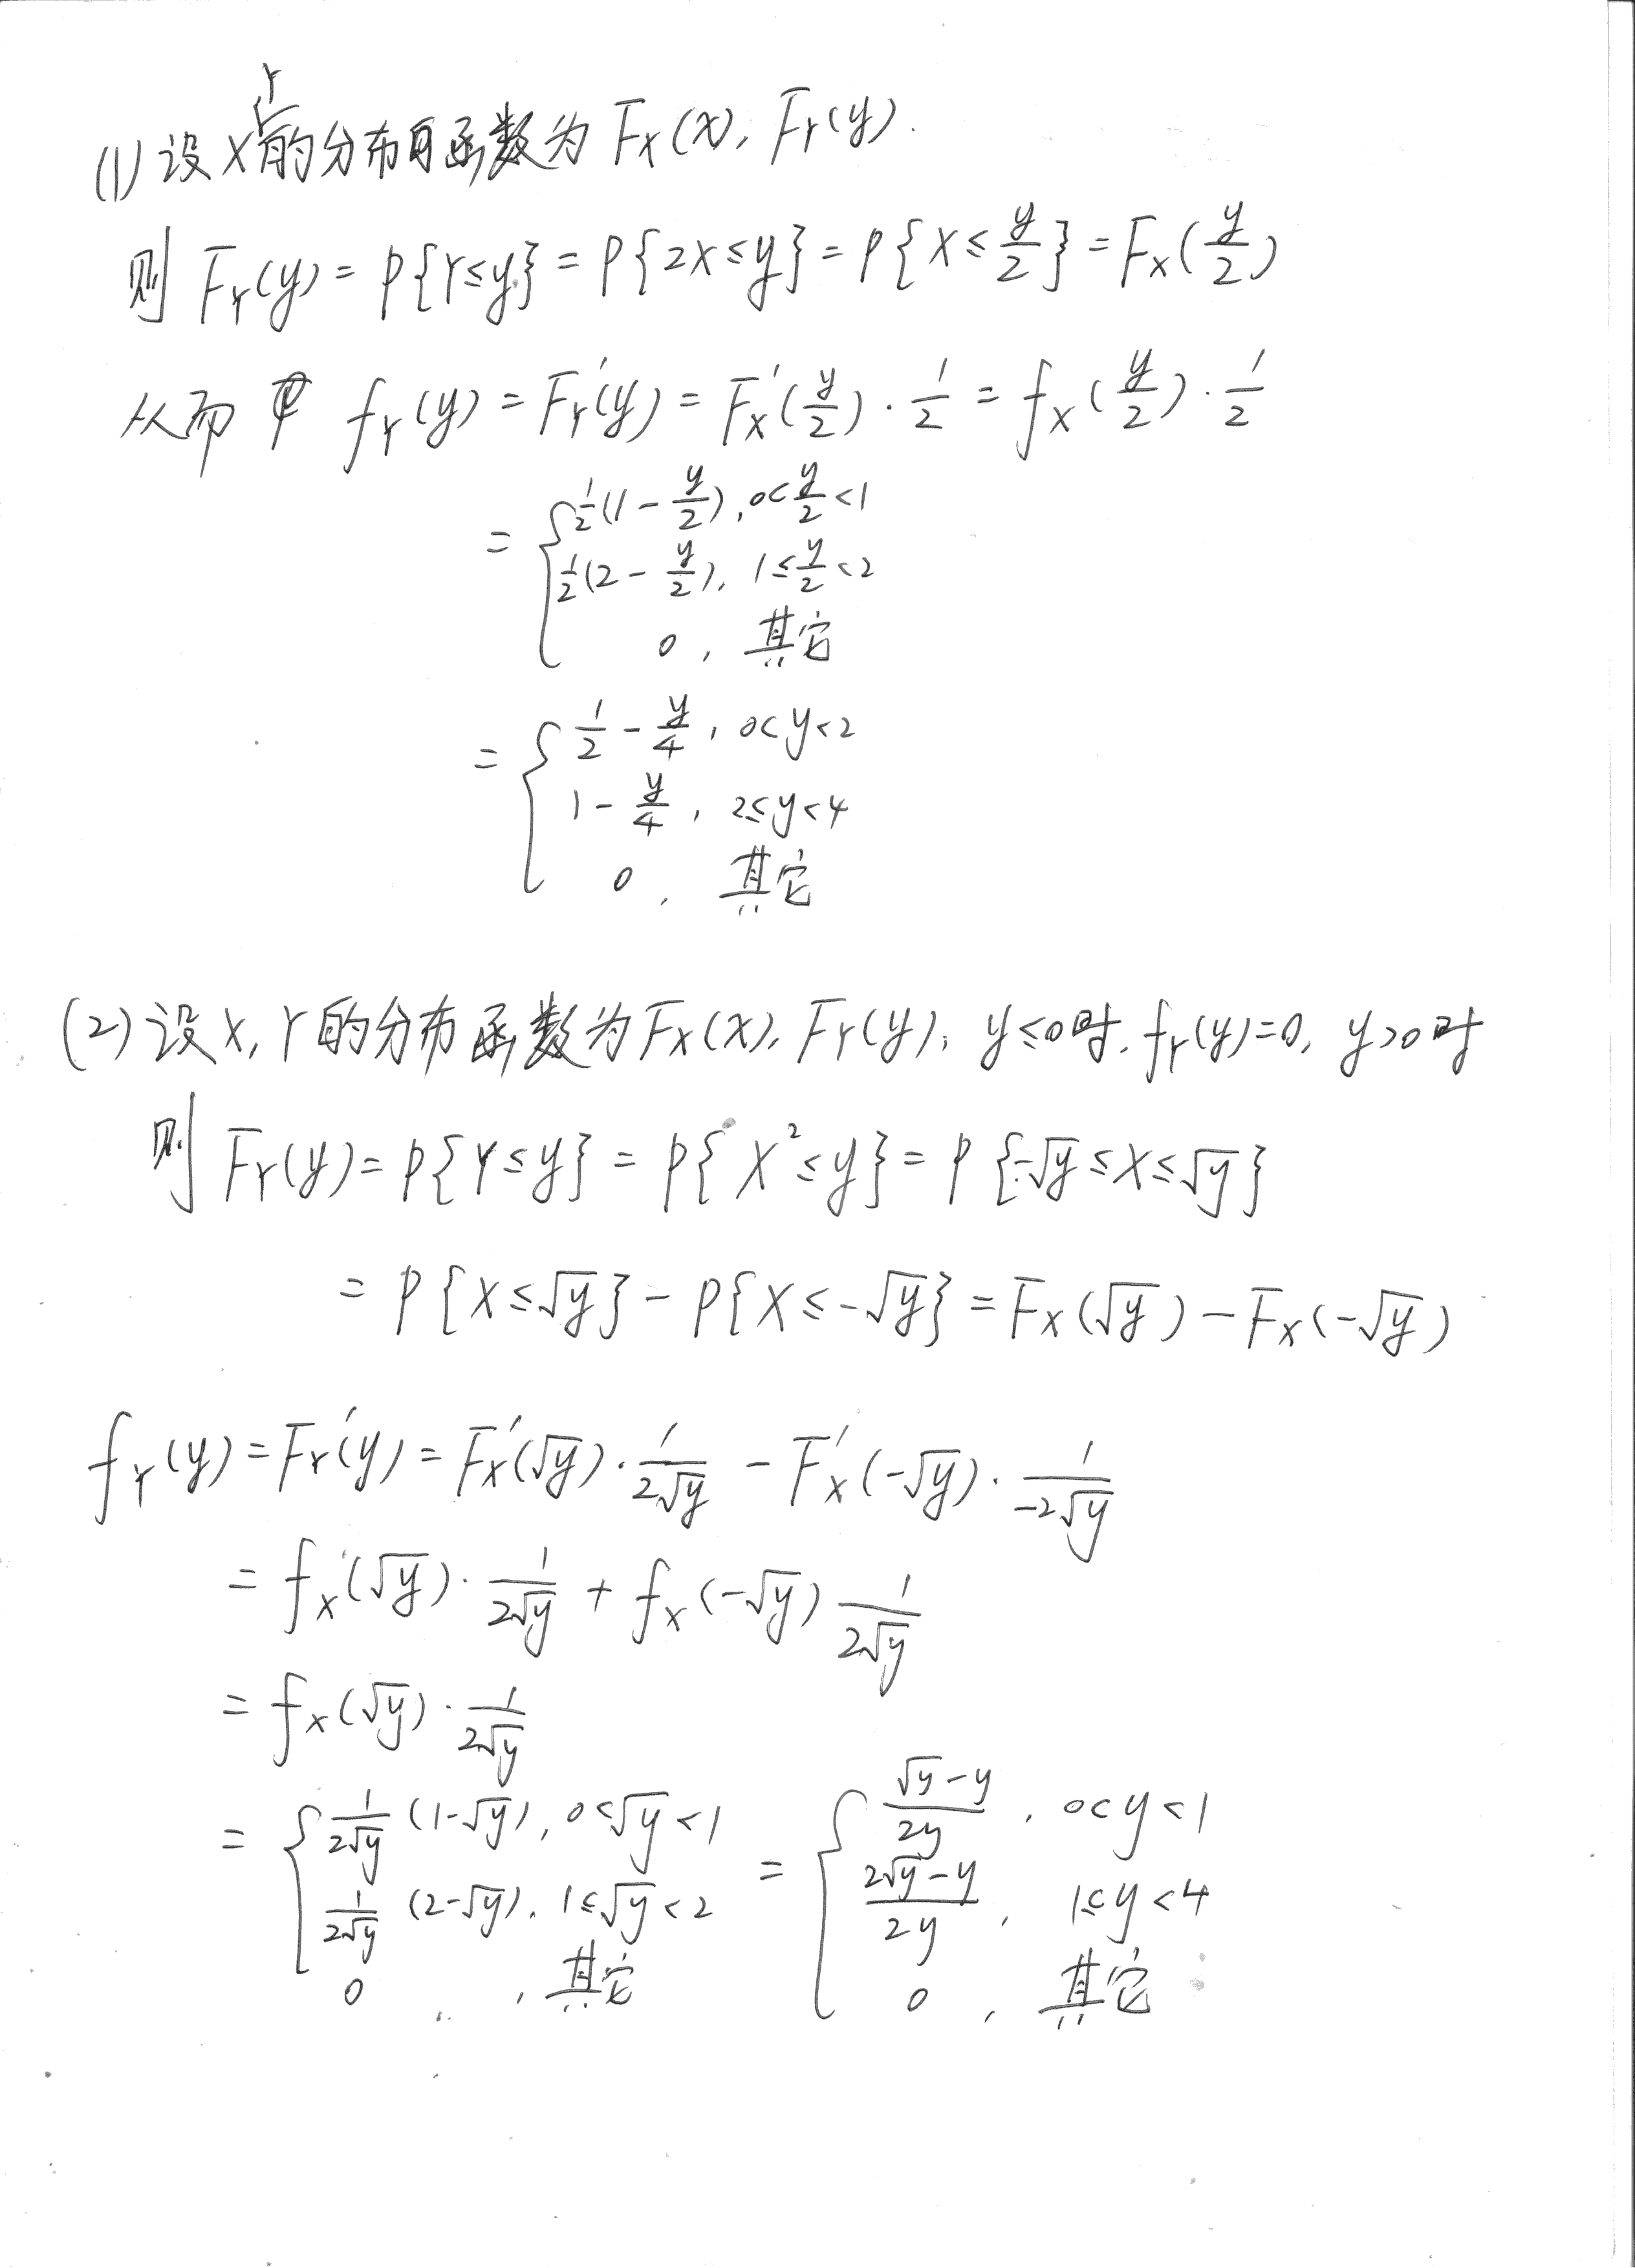 (1) 设X,Y的分布函数为 F_X(x), F_Y(y).
则 F_Y(y) = P{Y≤y} = P{2X≤y} = P{X≤y/2} = F_X(y/2)
从而 f_Y(y) = F_Y'(y) = F_X'(y/2)·1/2 = f_X(y/2)·1/2
= { 1/2(1-y/2), 0<y/2<1
1/2(2-y/2), 1≤y/2<2
0, 其它
= { 1/2 - y/4, 0<y<2
1 - y/4, 2≤y<4
0, 其它
(2) 设X, Y的分布函数为F_X(x), F_Y(y), y≤0时, f_Y(y)=0, y>0时
则 F_Y(y) = P{Y≤y} = P{X²≤y} = P{-√y≤X≤√y}
= P{X≤√y} - P{X≤-√y} = F_X(√y) - F_X(-√y)
f_Y(y) = F_Y'(y) = F_X'(√y)·1/(2√y) - F_X'(-√y)·1/(-2√y)
= f_X(√y)·1/(2√y) + f_X(-√y) 1/(2√y)
= f_X(√y)·1/(2√y)
= { 1/(2√y) (1-√y), 0<√y<1 = { (√y-y)/(2y), 0<y<1
1/(2√y) (2-√y), 1≤√y<2 (2√y-y)/(2y), 1≤y<4
0, 其它 0, 其它